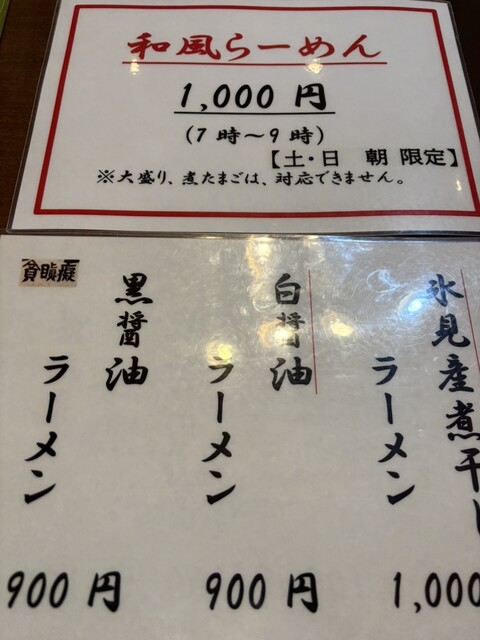 和風らーめん
1,000 円
(7 時～9 時)
【土・日 朝 限定】
※大盛り、煮たまごは、対応できません。
氷見産煮干し
ラーメン
1,000
白醤油
ラーメン
900 円
黒醤油
ラーメン
900 円
貪瞋癡